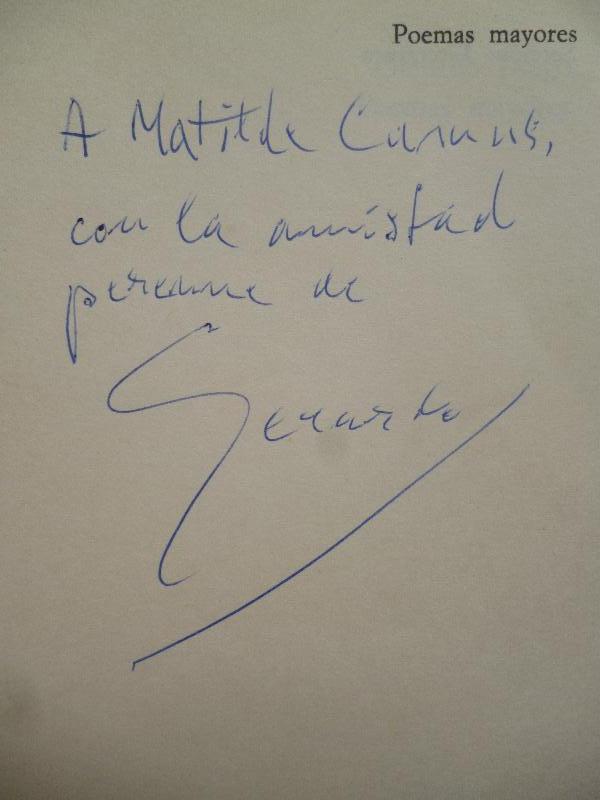 Poemas mayores
A Matilde Camus,
con la amistad
perenne de
Gerardo